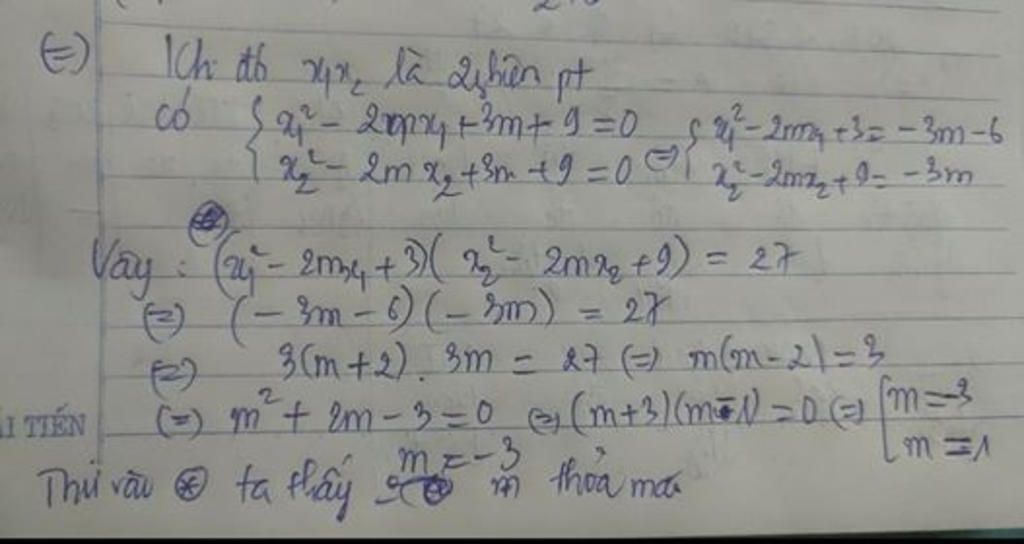 (=) Khi đó x₁x₂ là 2 nghiệm pt
có { x₁² - 2mx₁ + 3m + 9 = 0 (=) { x₁² - 2mx₁ + 3 = -3m - 6
x₂² - 2mx₂ + 3m + 9 = 0 x₂² - 2mx₂ + 9 = -3m
Vậy : (x₁² - 2mx₁ + 3)(x₂² - 2mx₂ + 9) = 27
(=) (-3m - 6)(-3m) = 27
(=) 3(m+2). 3m = 27 (=) m(m-2) = 3
(=) m² + 2m - 3 = 0 (=) (m+3)(m-1) = 0 (=) [ m = -3
m = 1
TIẾN
Thử vào ⊛ ta thấy m = -3 thỏa mãn